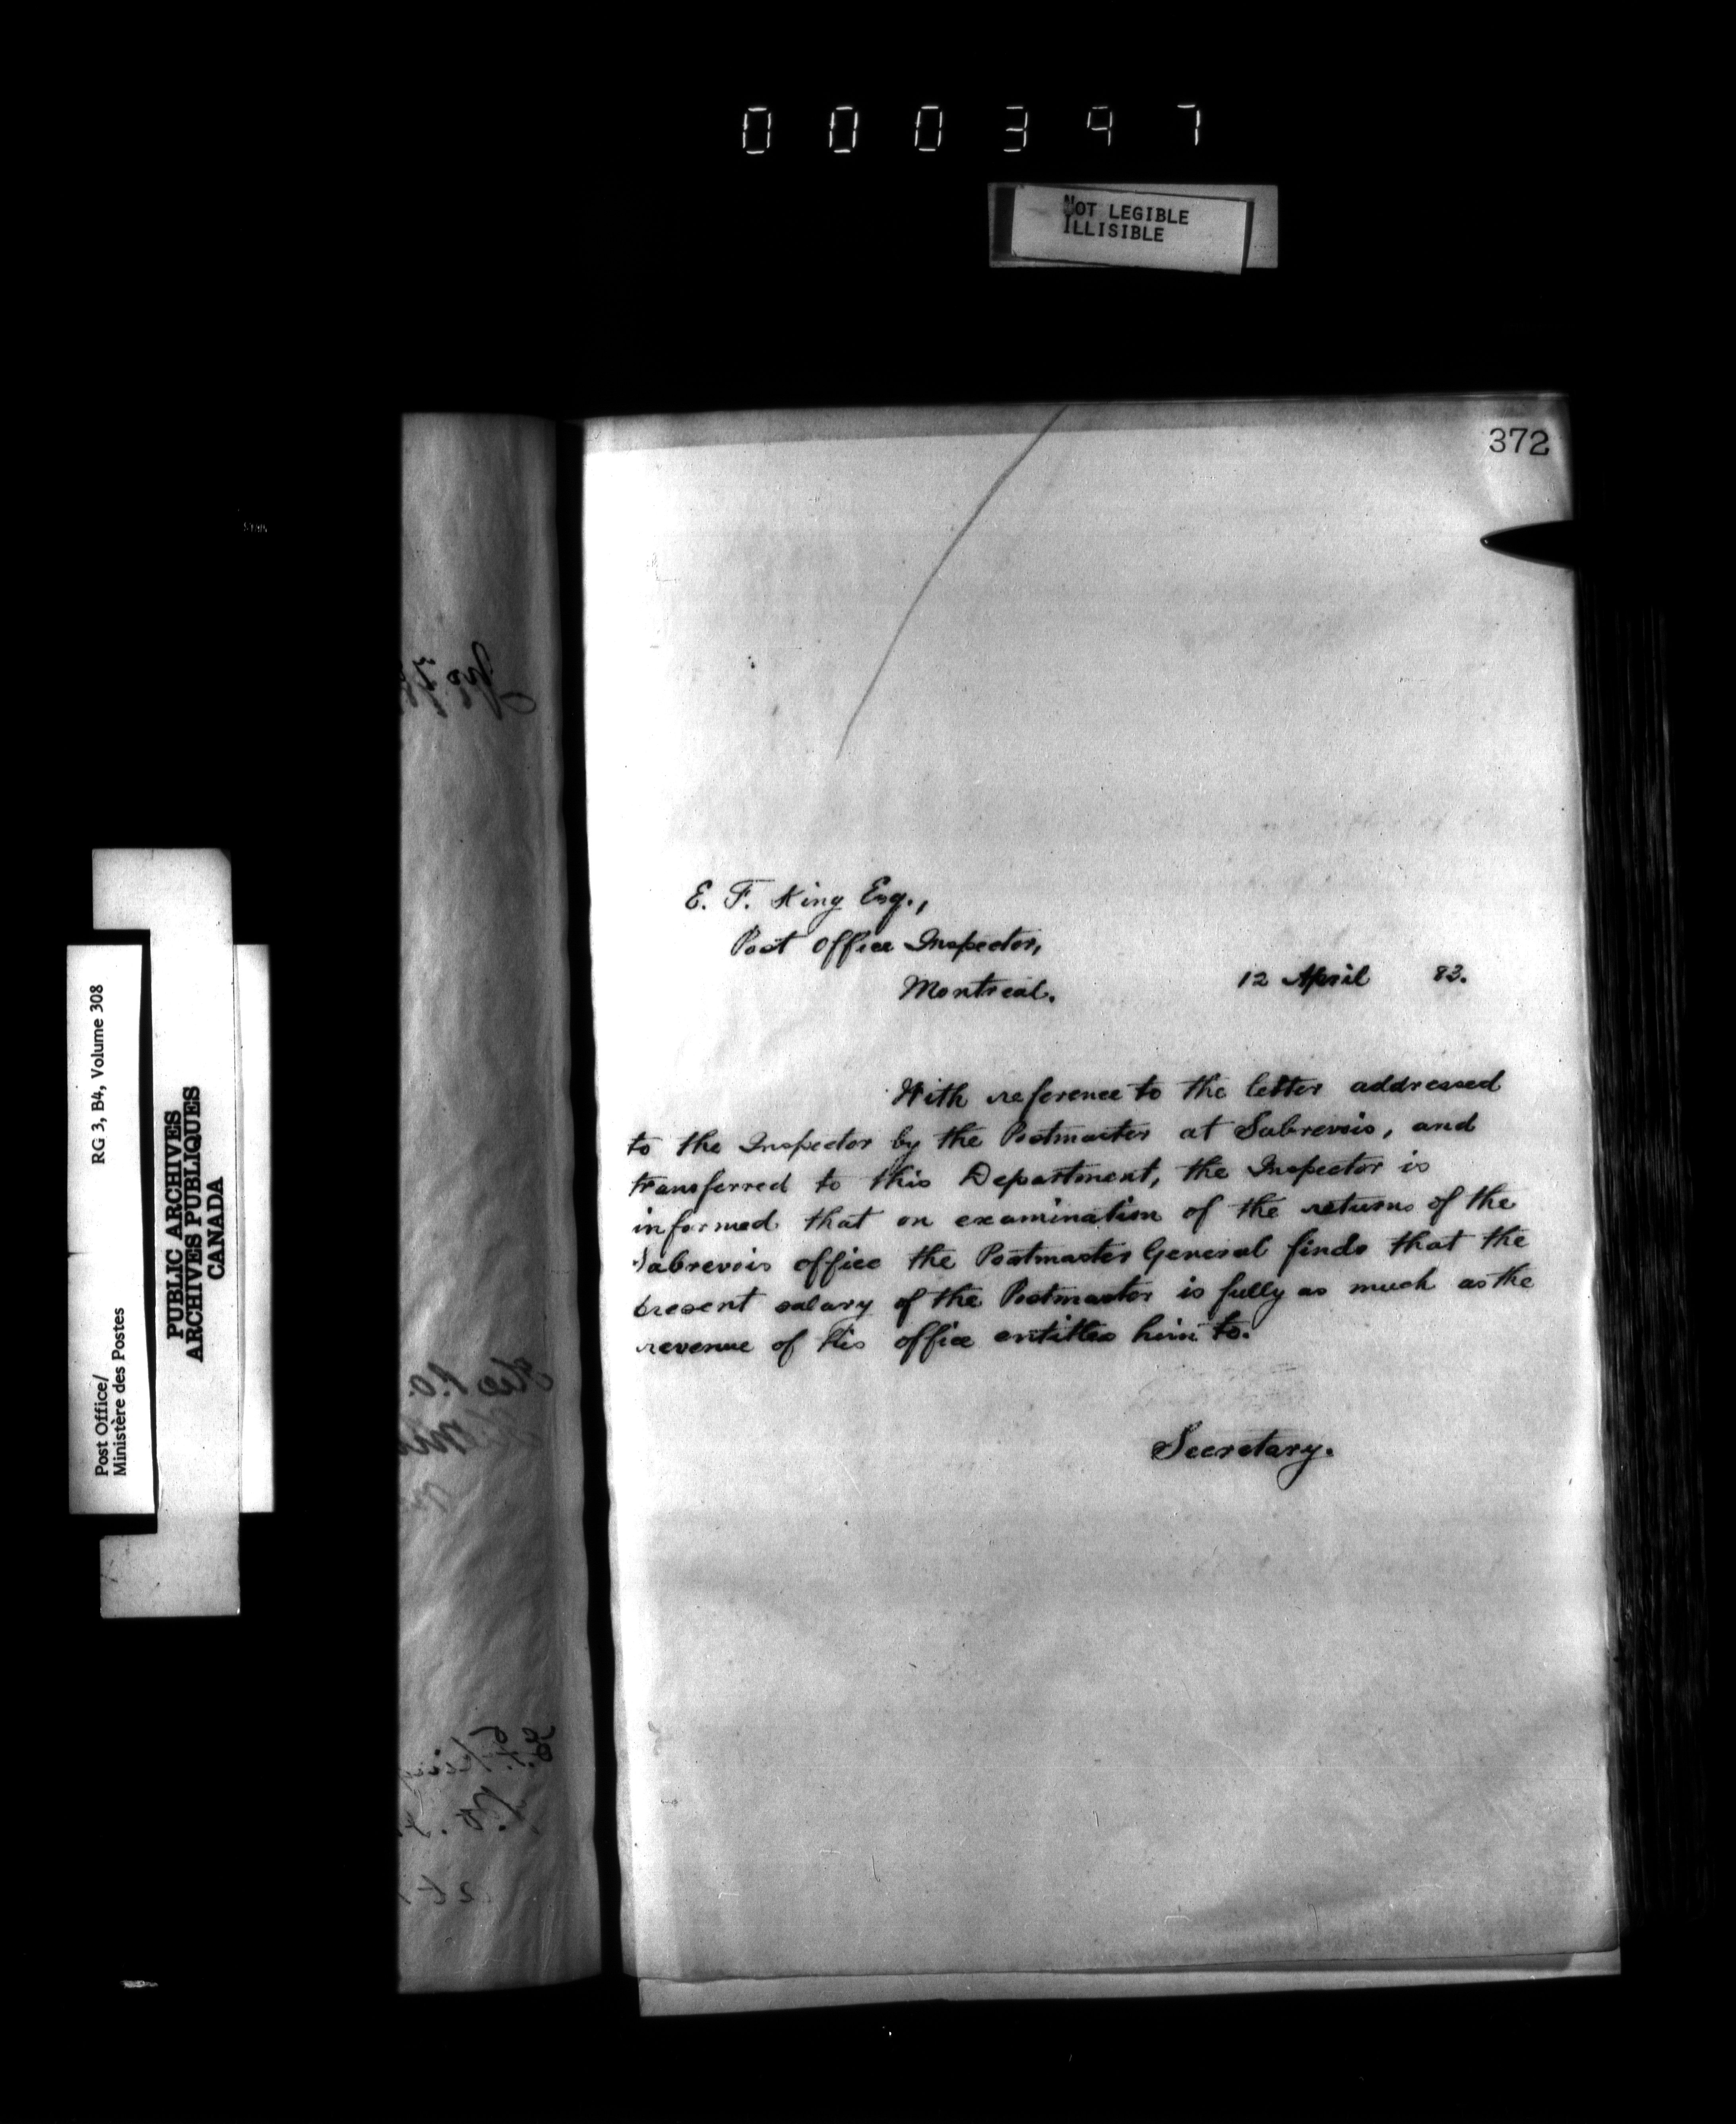 000397
NOT LEGIBLE
ILLISIBLE
372
E. F. King Esq.,
Post Office Inspector,
Montreal.
12 April 83.
With reference to the letter addressed
to the Inspector by the Postmaster at Sabrevois, and
transferred to this Department, the Inspector is
informed that on examination of the returns of the
Sabrevois office the Postmaster General finds that the
present salary of the Postmaster is fully as much as the
revenue of his office entitles him to.
Secretary.
Post Office/
Ministère des Postes
RG 3, B4, Volume 308
PUBLIC ARCHIVES
ARCHIVES PUBLIQUES
CANADA